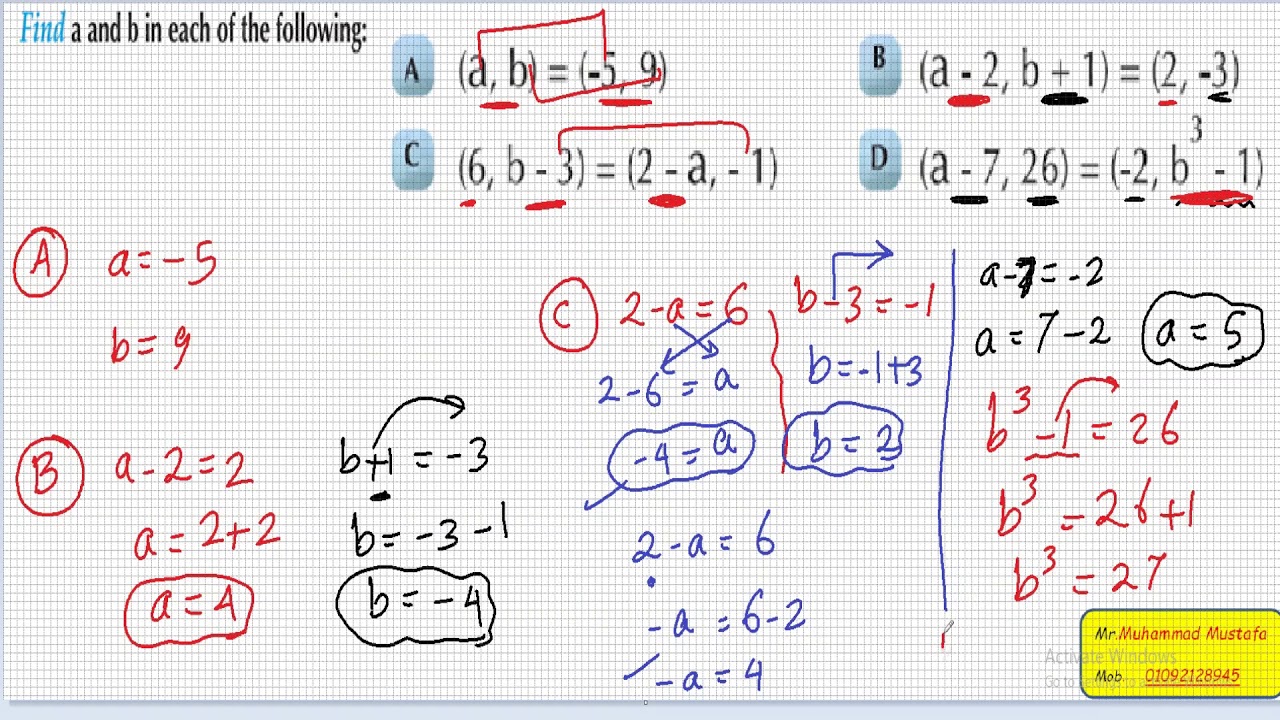 Find a and b in each of the following:
A (a, b) = (-5, 9)
B (a - 2, b + 1) = (2, -3)
C (6, b - 3) = (2 - a, - 1)
D (a - 7, 26) = (-2, b³ - 1)
A a = - 5
b = 9
B a - 2 = 2
a = 2 + 2
a = 4
b + 1 = - 3
b = - 3 - 1
b = - 4
C 2 - a = 6
2 - 6 = a
- 4 = a
2 - a = 6
- a = 6 - 2
- a = 4
b - 3 = - 1
b = - 1 + 3
b = 2
a - 7 = - 2
a = 7 - 2
a = 5
b³ - 1 = 26
b³ = 26 + 1
b³ = 27
Mr.Muhammad Mustafa
Mob. 01092128945
Activate Windows